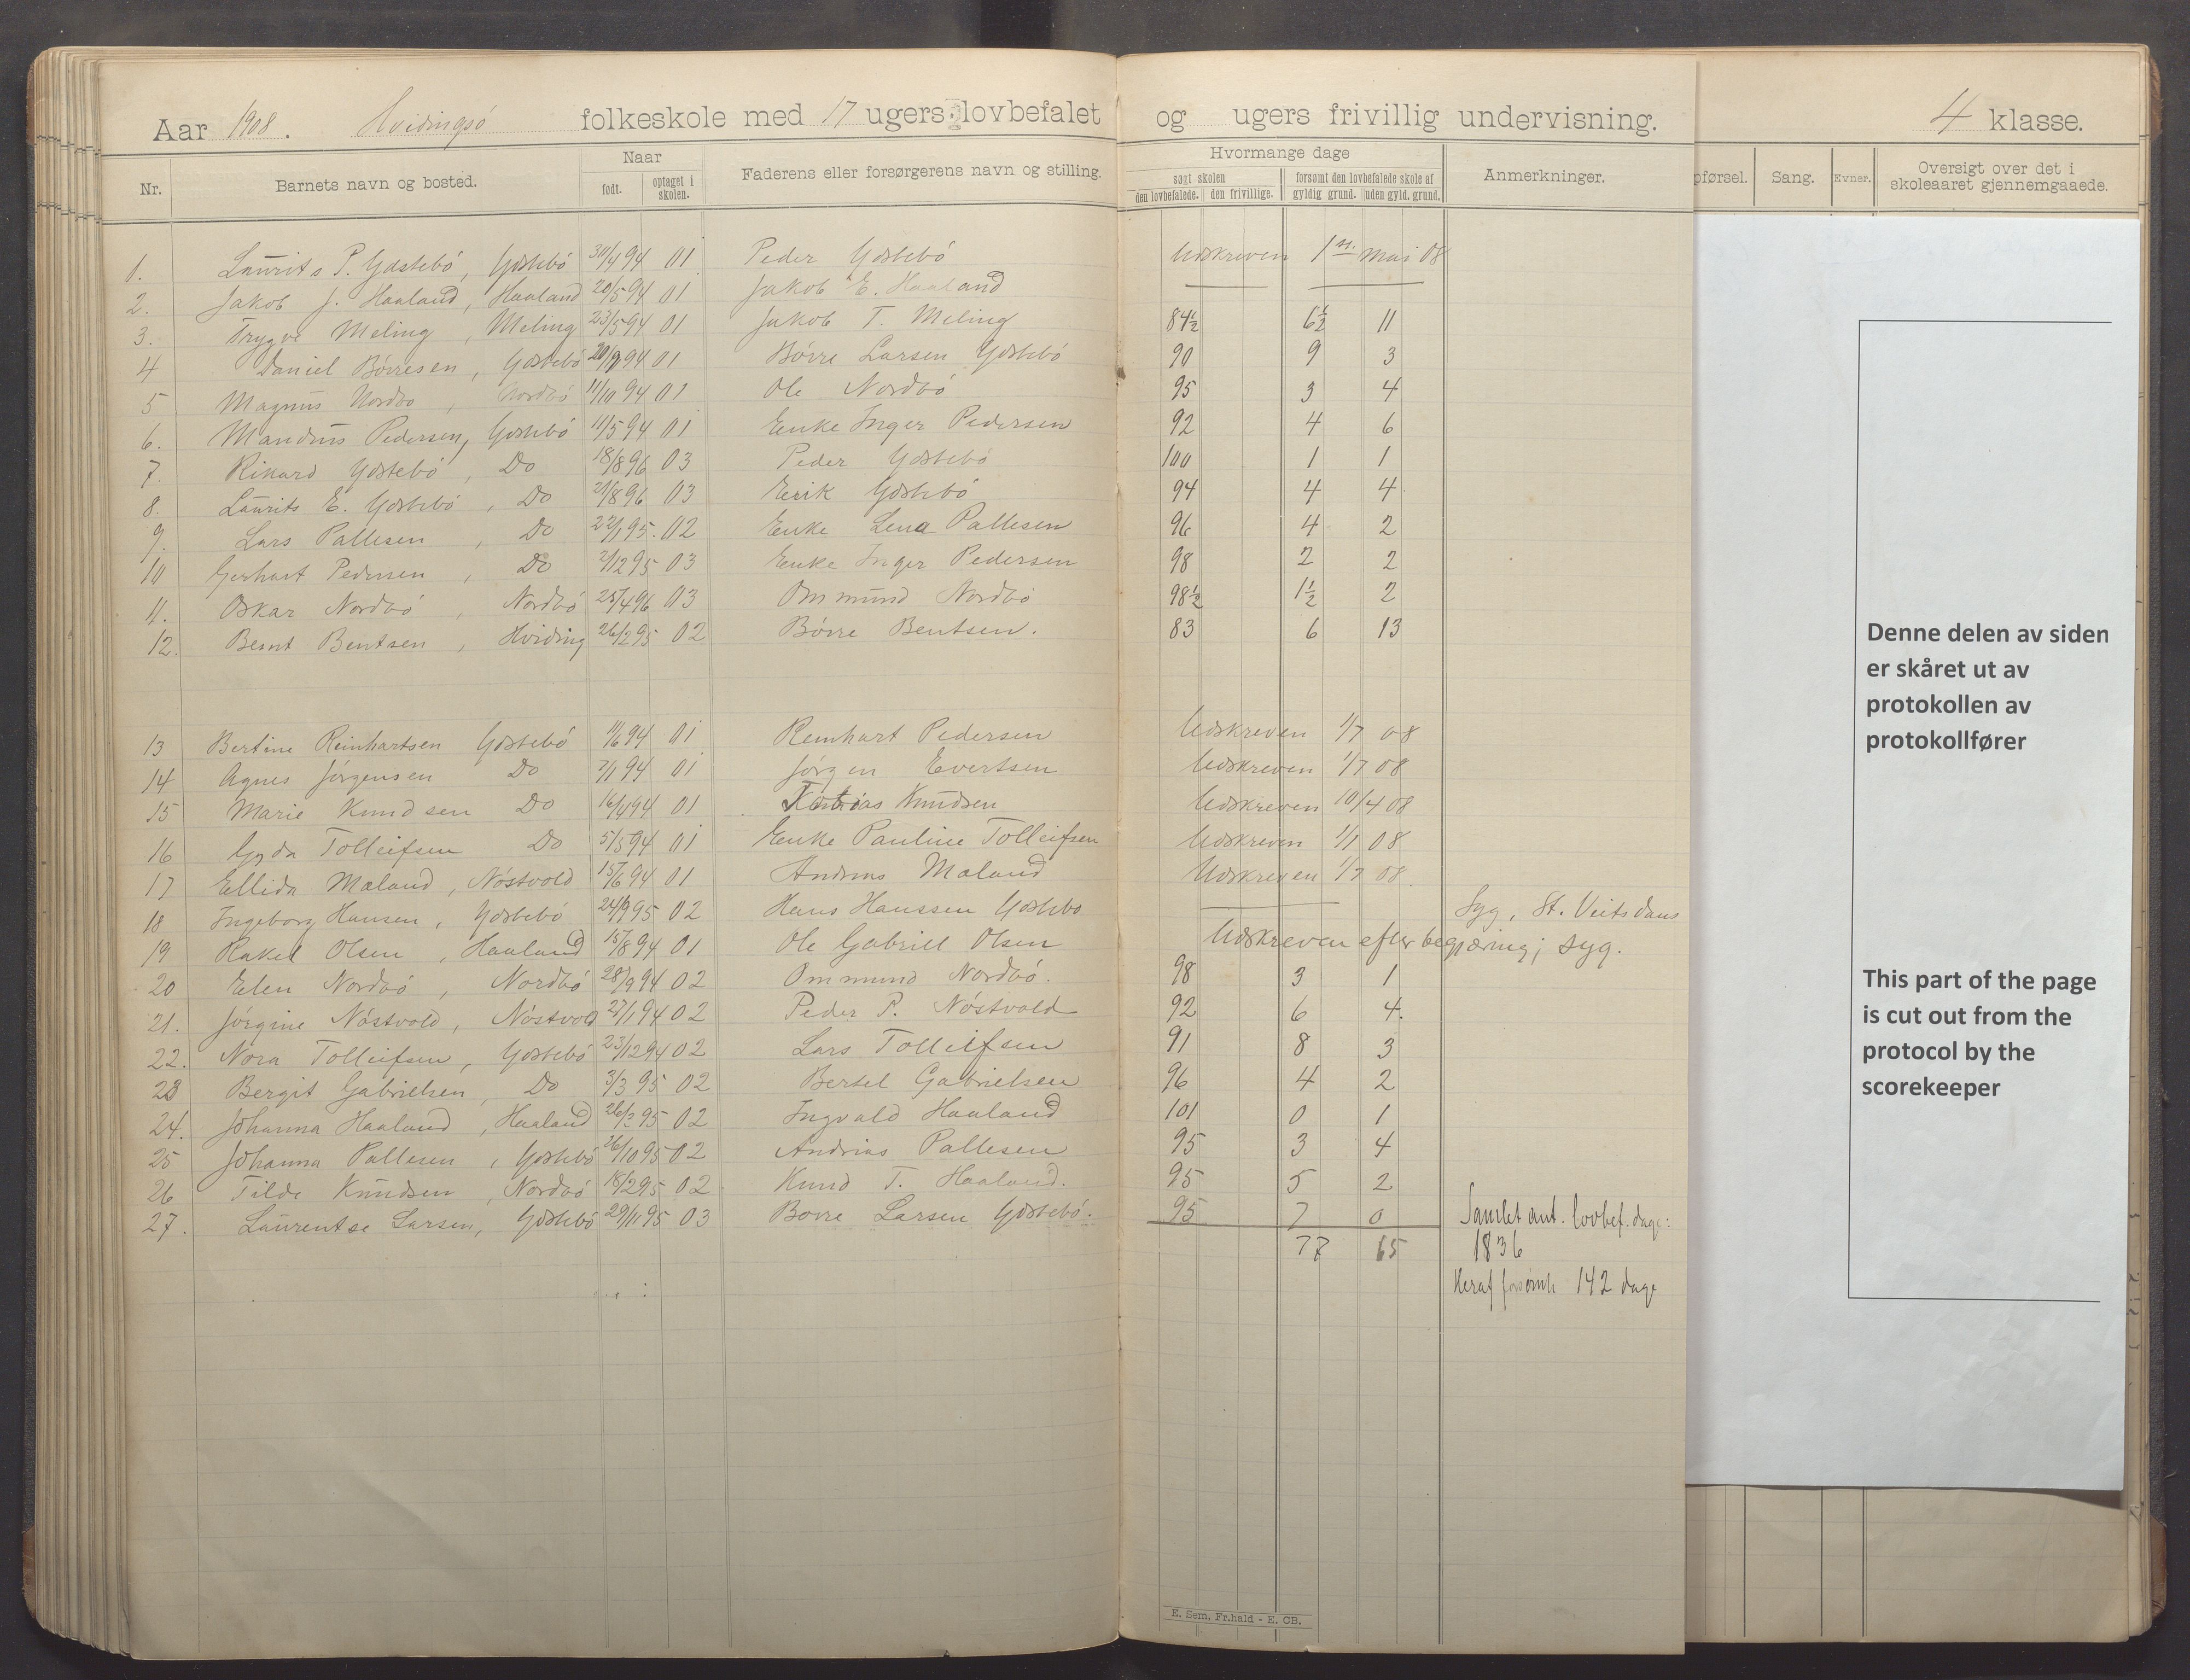 Aar 1908. Hvidingsö folkeskole med 17 ugers lovbefalet og ugers frivillig undervisning. 4 klasse.
Nr. Barnets navn og bosted. Naar født. optaget i skolen. Faderens eller forsørgerens navn og stilling. Hvormange dage søgt skolen den lovbefalede. den frivillige. forsømt den lovbefalede skole af gyldig grund. uden gyld. grund. Anmerkninger. pførsel. Sang. Evner. Oversigt over det i skoleaaret gjennemgaaede.
1. Laurits P. Ydstebö, Ydstebö 30/4 94 01 Peder Ydstebö Udskreven 1ste mai 08
2. Jakob J. Haaland, Haaland 20/5 94 01 Jakob E. Haaland
3. Trygve Meling, Meling 23/5 94 01 Jakob T. Meling 84½ 6½ 11
4 Daniel Börresen, Ydstebö 94 01 Börre Larsen Ydstebö 90 9 3
5 Magnus Nordbö, Nordbö 11/10 94 01 Ole Nordbö 95 3 4
6. Mandius Pedersen, Ydstebö 11/5 94 01 Enke Inger Pedersen 92 4 6
7. Rikard Ydstebö, Do 18/8 96 03 Peder Ydstebö 100 1 1
8. Laurits E. Ydstebö, Do 21/8 96 03 Erik Ydstebö 94 4 4
9. Lars Pallesen, Do 22/1 95. 02 Enke Lena Pallesen 96 4 2
10 Gerhart Pedersen, Do 2/12 95 03 Enke Inger Pedersen 98 2 2
11. Oskar Nordbö, Nordbö 25/4 96 03 Ommund Nordbö 98½ 1½ 2
12. Bernt Bentsen, Hviding 26/2 95 02 Börre Bentsen. 83 6 13
13 Bertine Reinhartsen Ydstebö 11/6 94 01 Reinhart Pedersen Udskreven 1/7 08
14 Agnes Jörgensen Do 7/1 94 01 Jörgen Evertsen Udskreven 1/7 08
15 Marie Knudsen Do 16/4 94 01 Knudsen Udskreven 10/4 08
16 Gyda Tolleifsen Do 5/5 94 01 Enke Pauline Tolleifsen Udskreven 1/1 08
17 Ellida Maland, Nöstvold 15/6 94 01 Andreas Maland Udskreven 1/7 08.
18 Ingeborg Hansen, Ydstebö 24/9 95 02 Hans Hanssen Ydstebö Syg, St. Veitsdans
19 Rakel Olsen, Haaland 15/8 94 01 Ole Gabriel Olsen Udskreven efter begjæring; syg.
20 Elen Nordbö, Nordbö 28/9 94 02 Ommund Nordbö. 98 3 1
21. Jörgine Nöstvold, Nöstvold 27/1 94 02 Peder P. Nöstvold 92 6 4.
22. Nora Tolleifsen, Ydstebö 23/12 94 02 Lars Tolleifsen 91 8 3
23 Bergit Gabrielsen, Do 3/3 95 02 Bertel Gabrielsen 96 4 2
24. Johanna Haaland, Haaland 26/3 95 02 Ingvald Haaland 101 0 1
25 Johanna Pallesen, Ydstebö 26/10 95 02 Andrias Pallesen 95 3 4
26 Tilde Knudsen, Nordbö 18/2 95 02 Knud T. Haaland. 95 5 2
27. Laurentse Larsen, Ydstebö 29/11 95 03 Börre Larsen Ydstebö. 95 7 0 Samlet ant. lovbef. dage:
77 65 1836
Heraf forsömte 142 dage
E. Sem, Fr.hald - E. CB.
Denne delen av siden
er skåret ut av
protokollen av
protokollfører
This part of the page
is cut out from the
protocol by the
scorekeeper